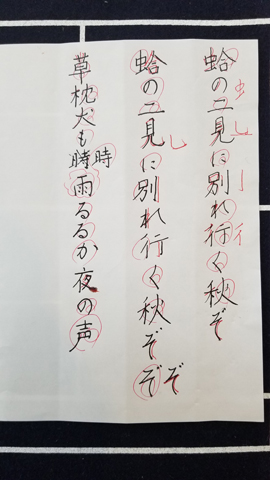 蛤の二見に別れ行く秋ぞ
蛤の二見に別れ行く秋ぞぞ
ぞ
草枕犬も時雨るるか夜の声
時